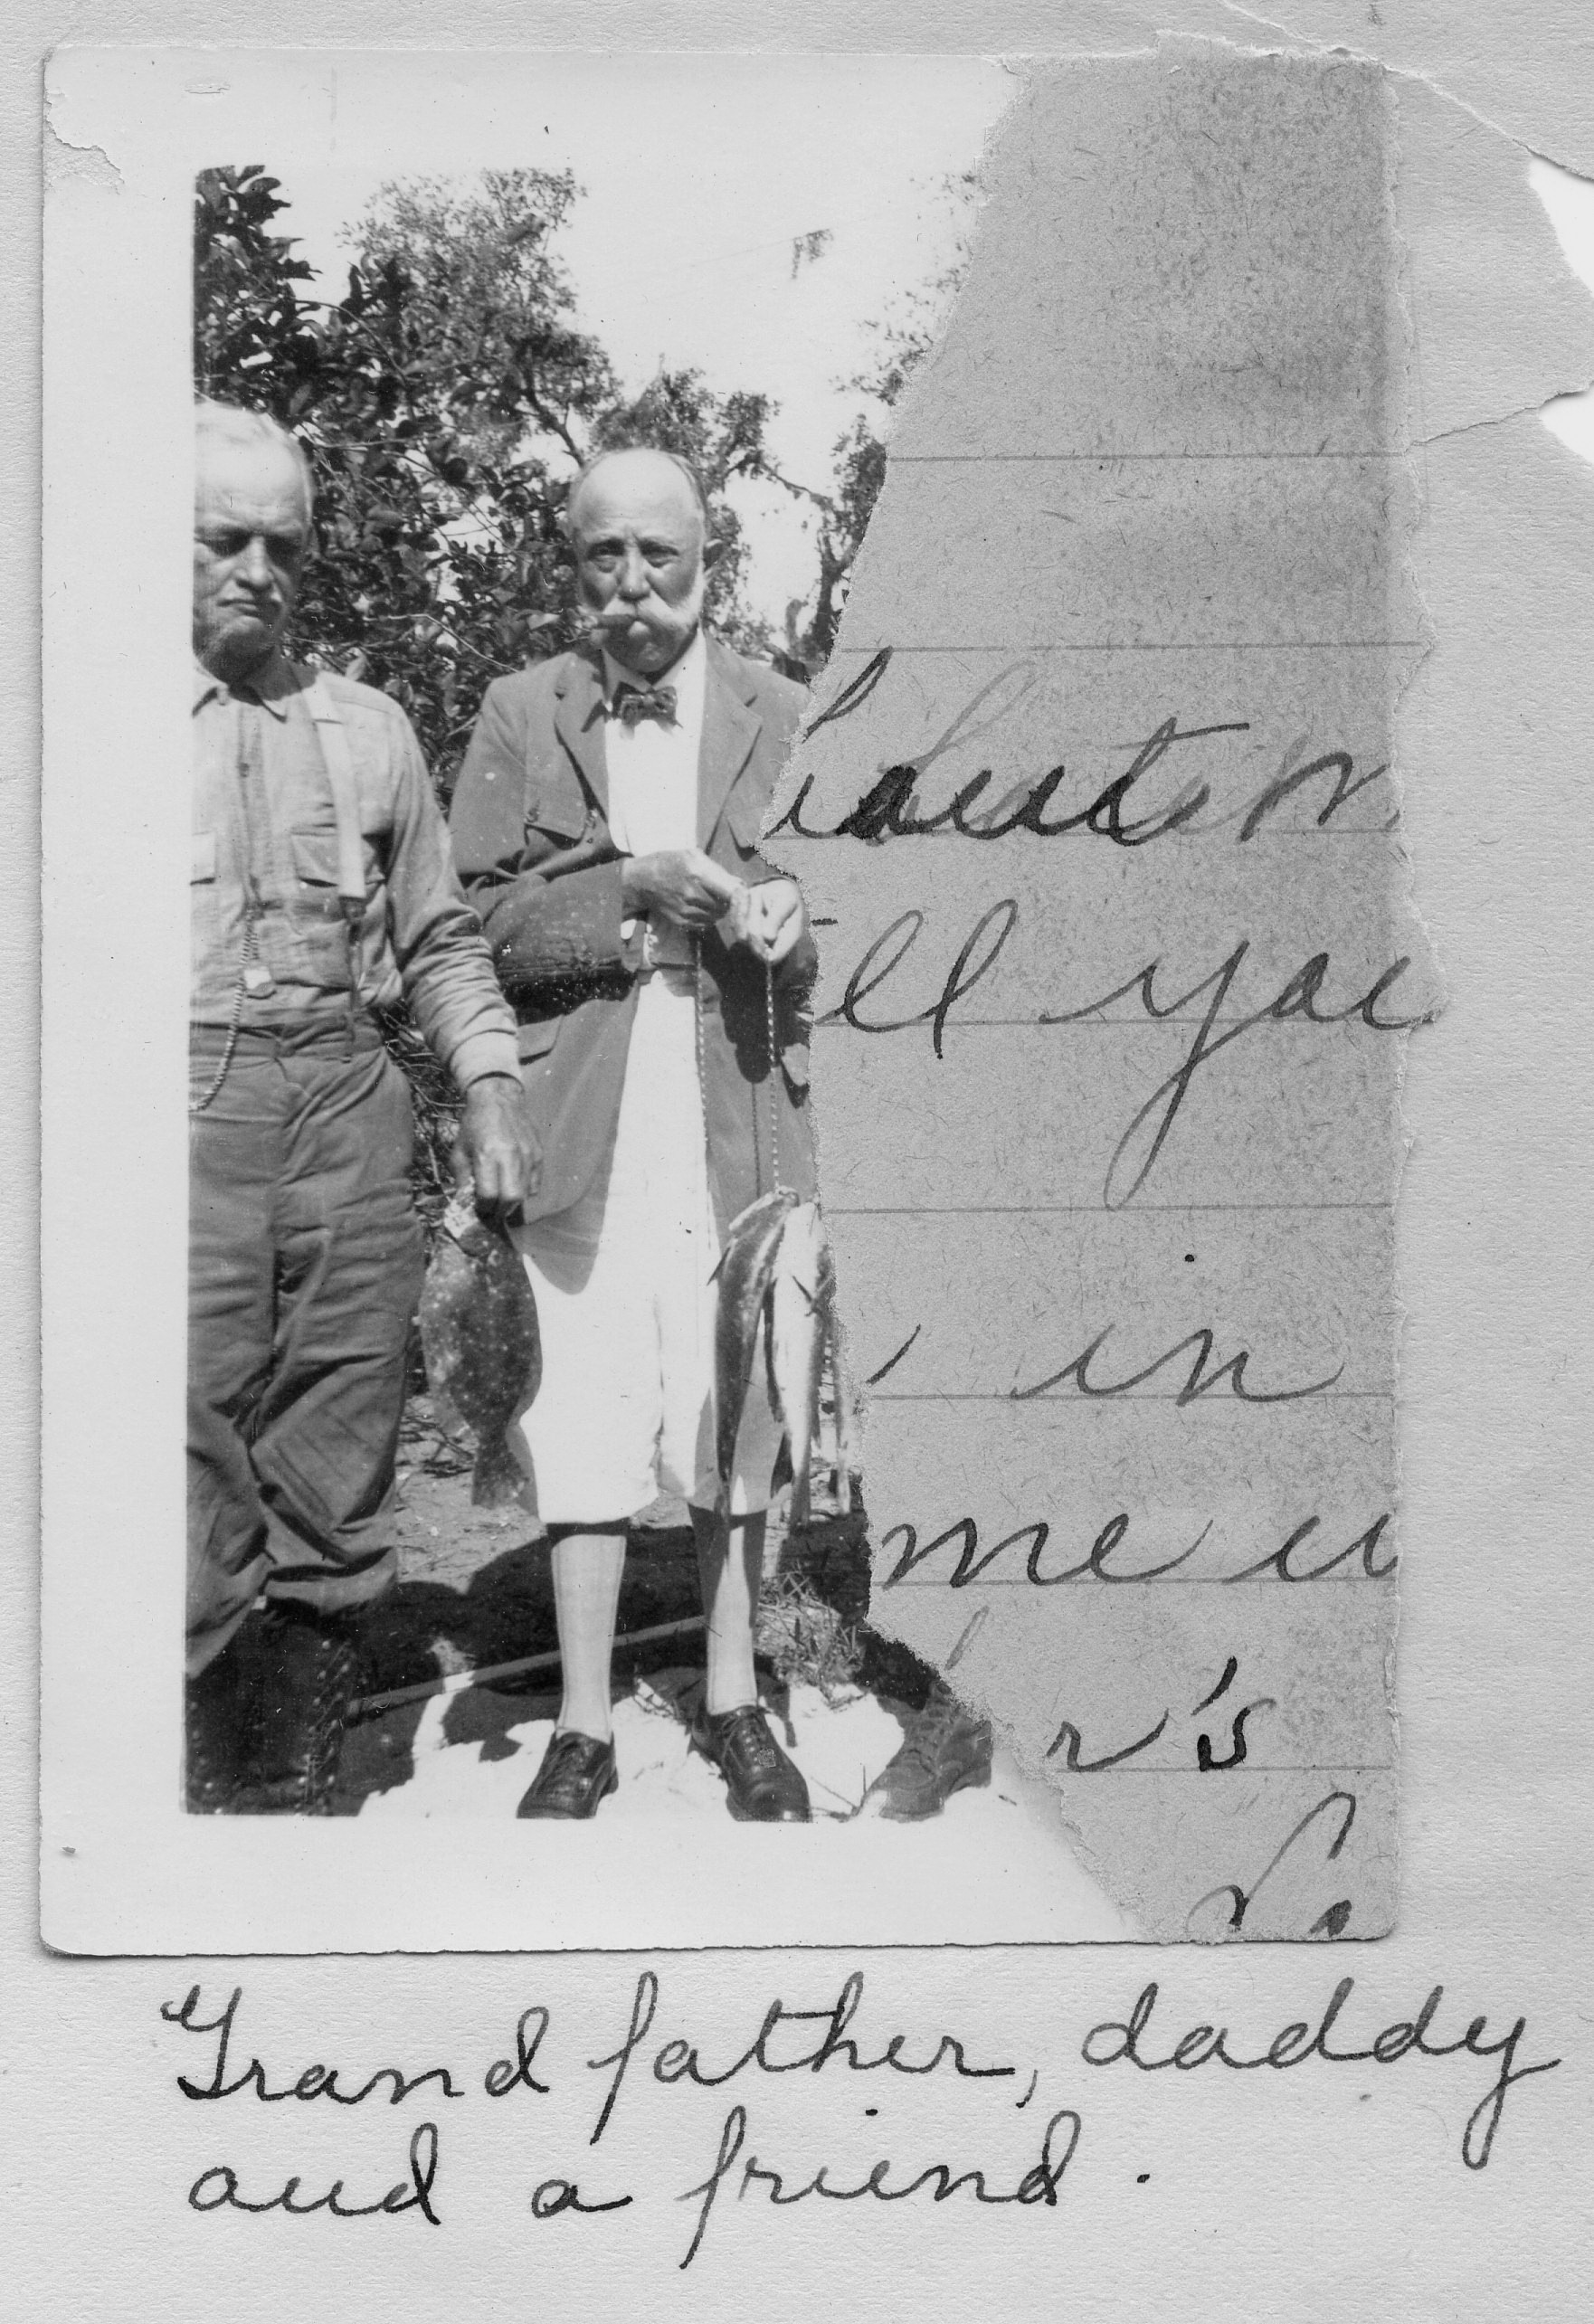 ll you
in
me
r's
Grandfather, daddy
and a friend.